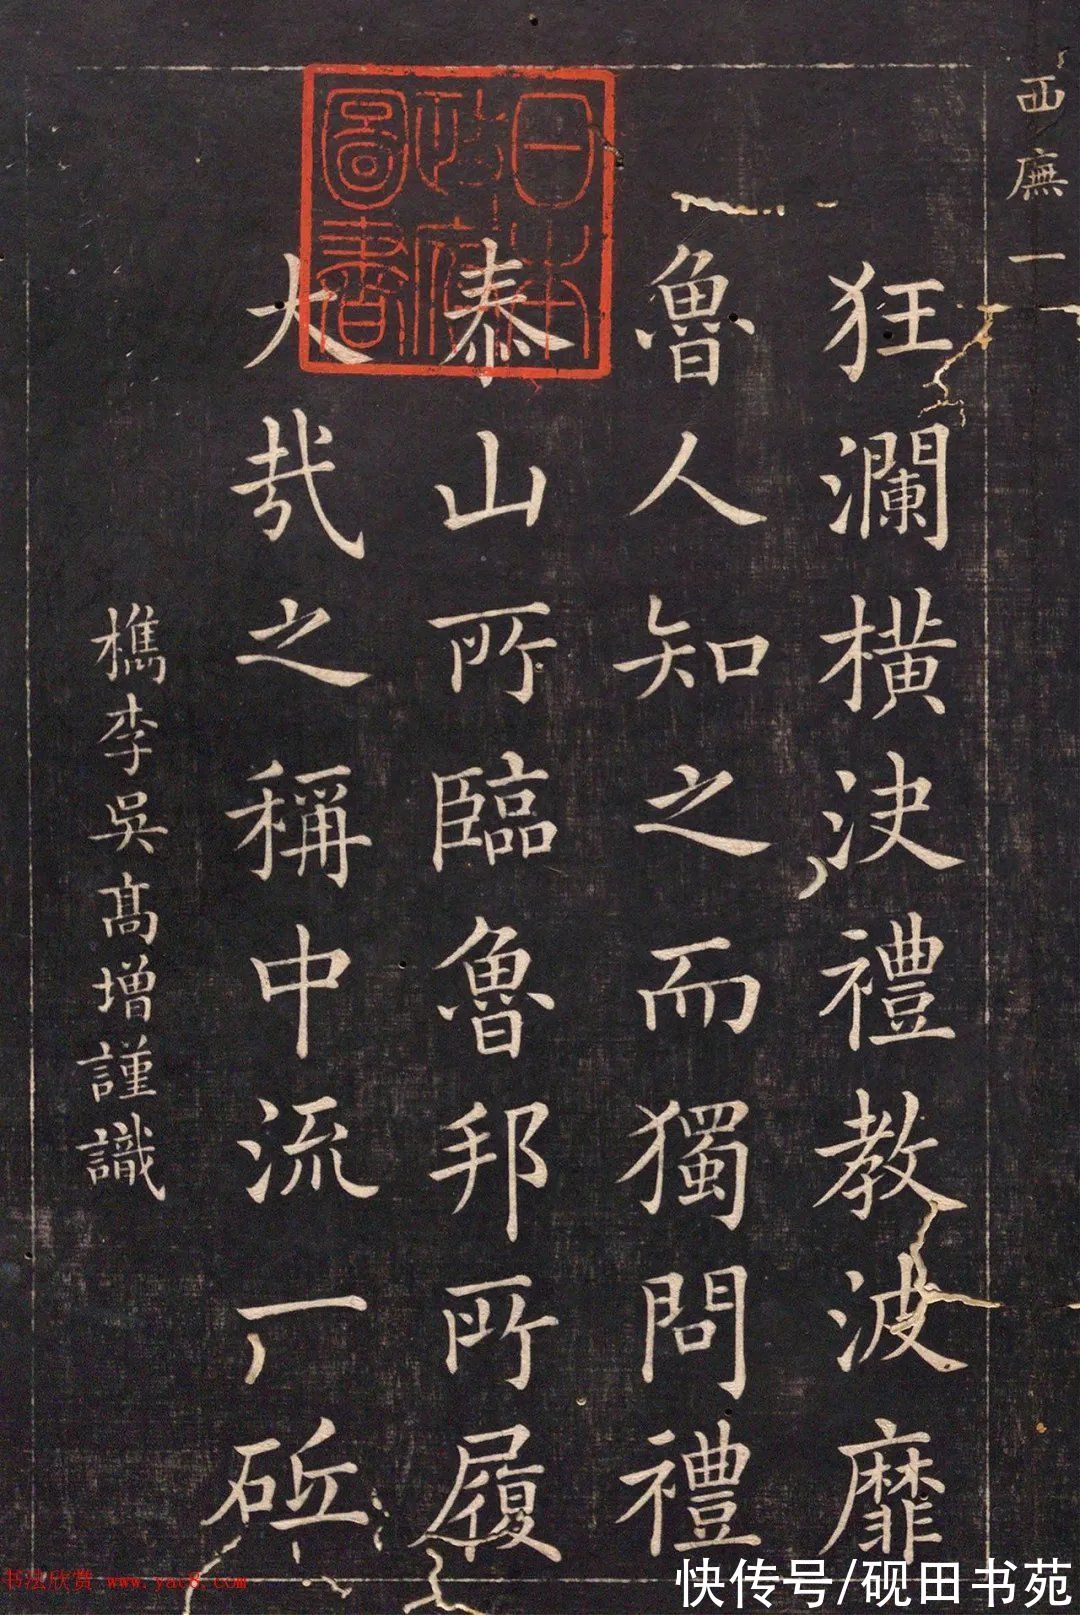 西廡一
狂瀾横决禮教波靡
魯人知之而獨問禮
泰山所臨魯邦所履
大哉之稱中流丁砥
檇李吳高增謹識
日本
政府
圖書
书法欣赏 www.yac8.com
快传号/砚田书苑